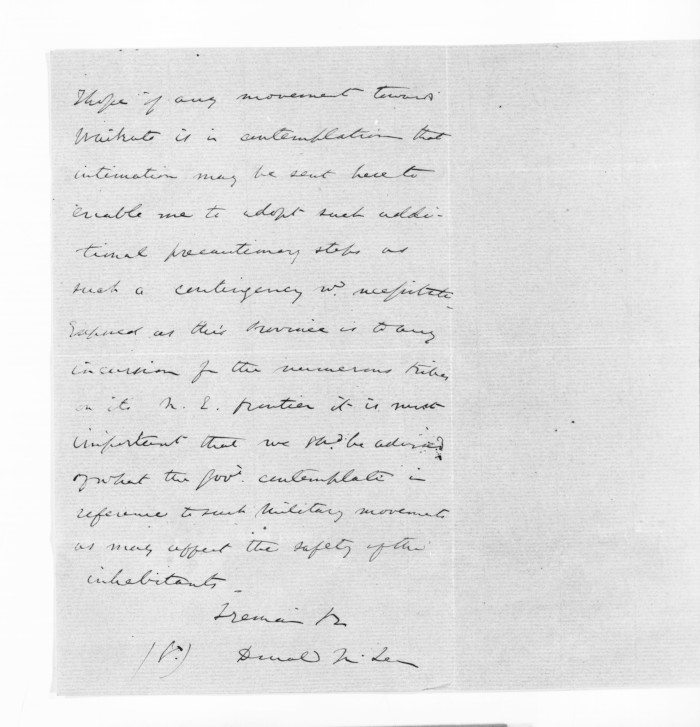 I hope if any movement towards
Waikato is in contemplation that
intimation may be sent here to
enable me to adopt such addi-
tional precautionary steps as
such a contingency wd. necessitate
Exposed as this Province is to any
incursion fr the numerous tribes
on its N. E. frontier it is most
important that we shd. be advised
of what the Govt. contemplate in
reference to such Military movements
as may affect the safety of the
inhabitants
I remain
Donald McLean